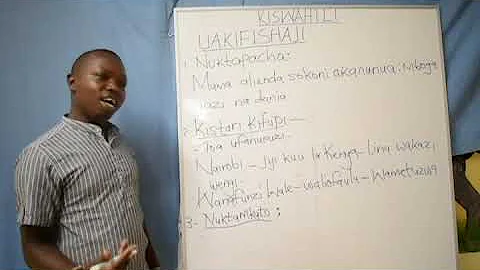 KISWAHILI
UAKIFISHAJI
1. Nuktapacha:
Mama alienda sokoni akanunua: Ndoga
na dania
2. Kistari Kifupi -
- Toa ufafanuzi
Nairobi - Jiji kuu la Kenya - Lina wakazi
wengi
Wanafunzi wale - waliofaulu - Wametuzwa
3- Nuktamkato ;